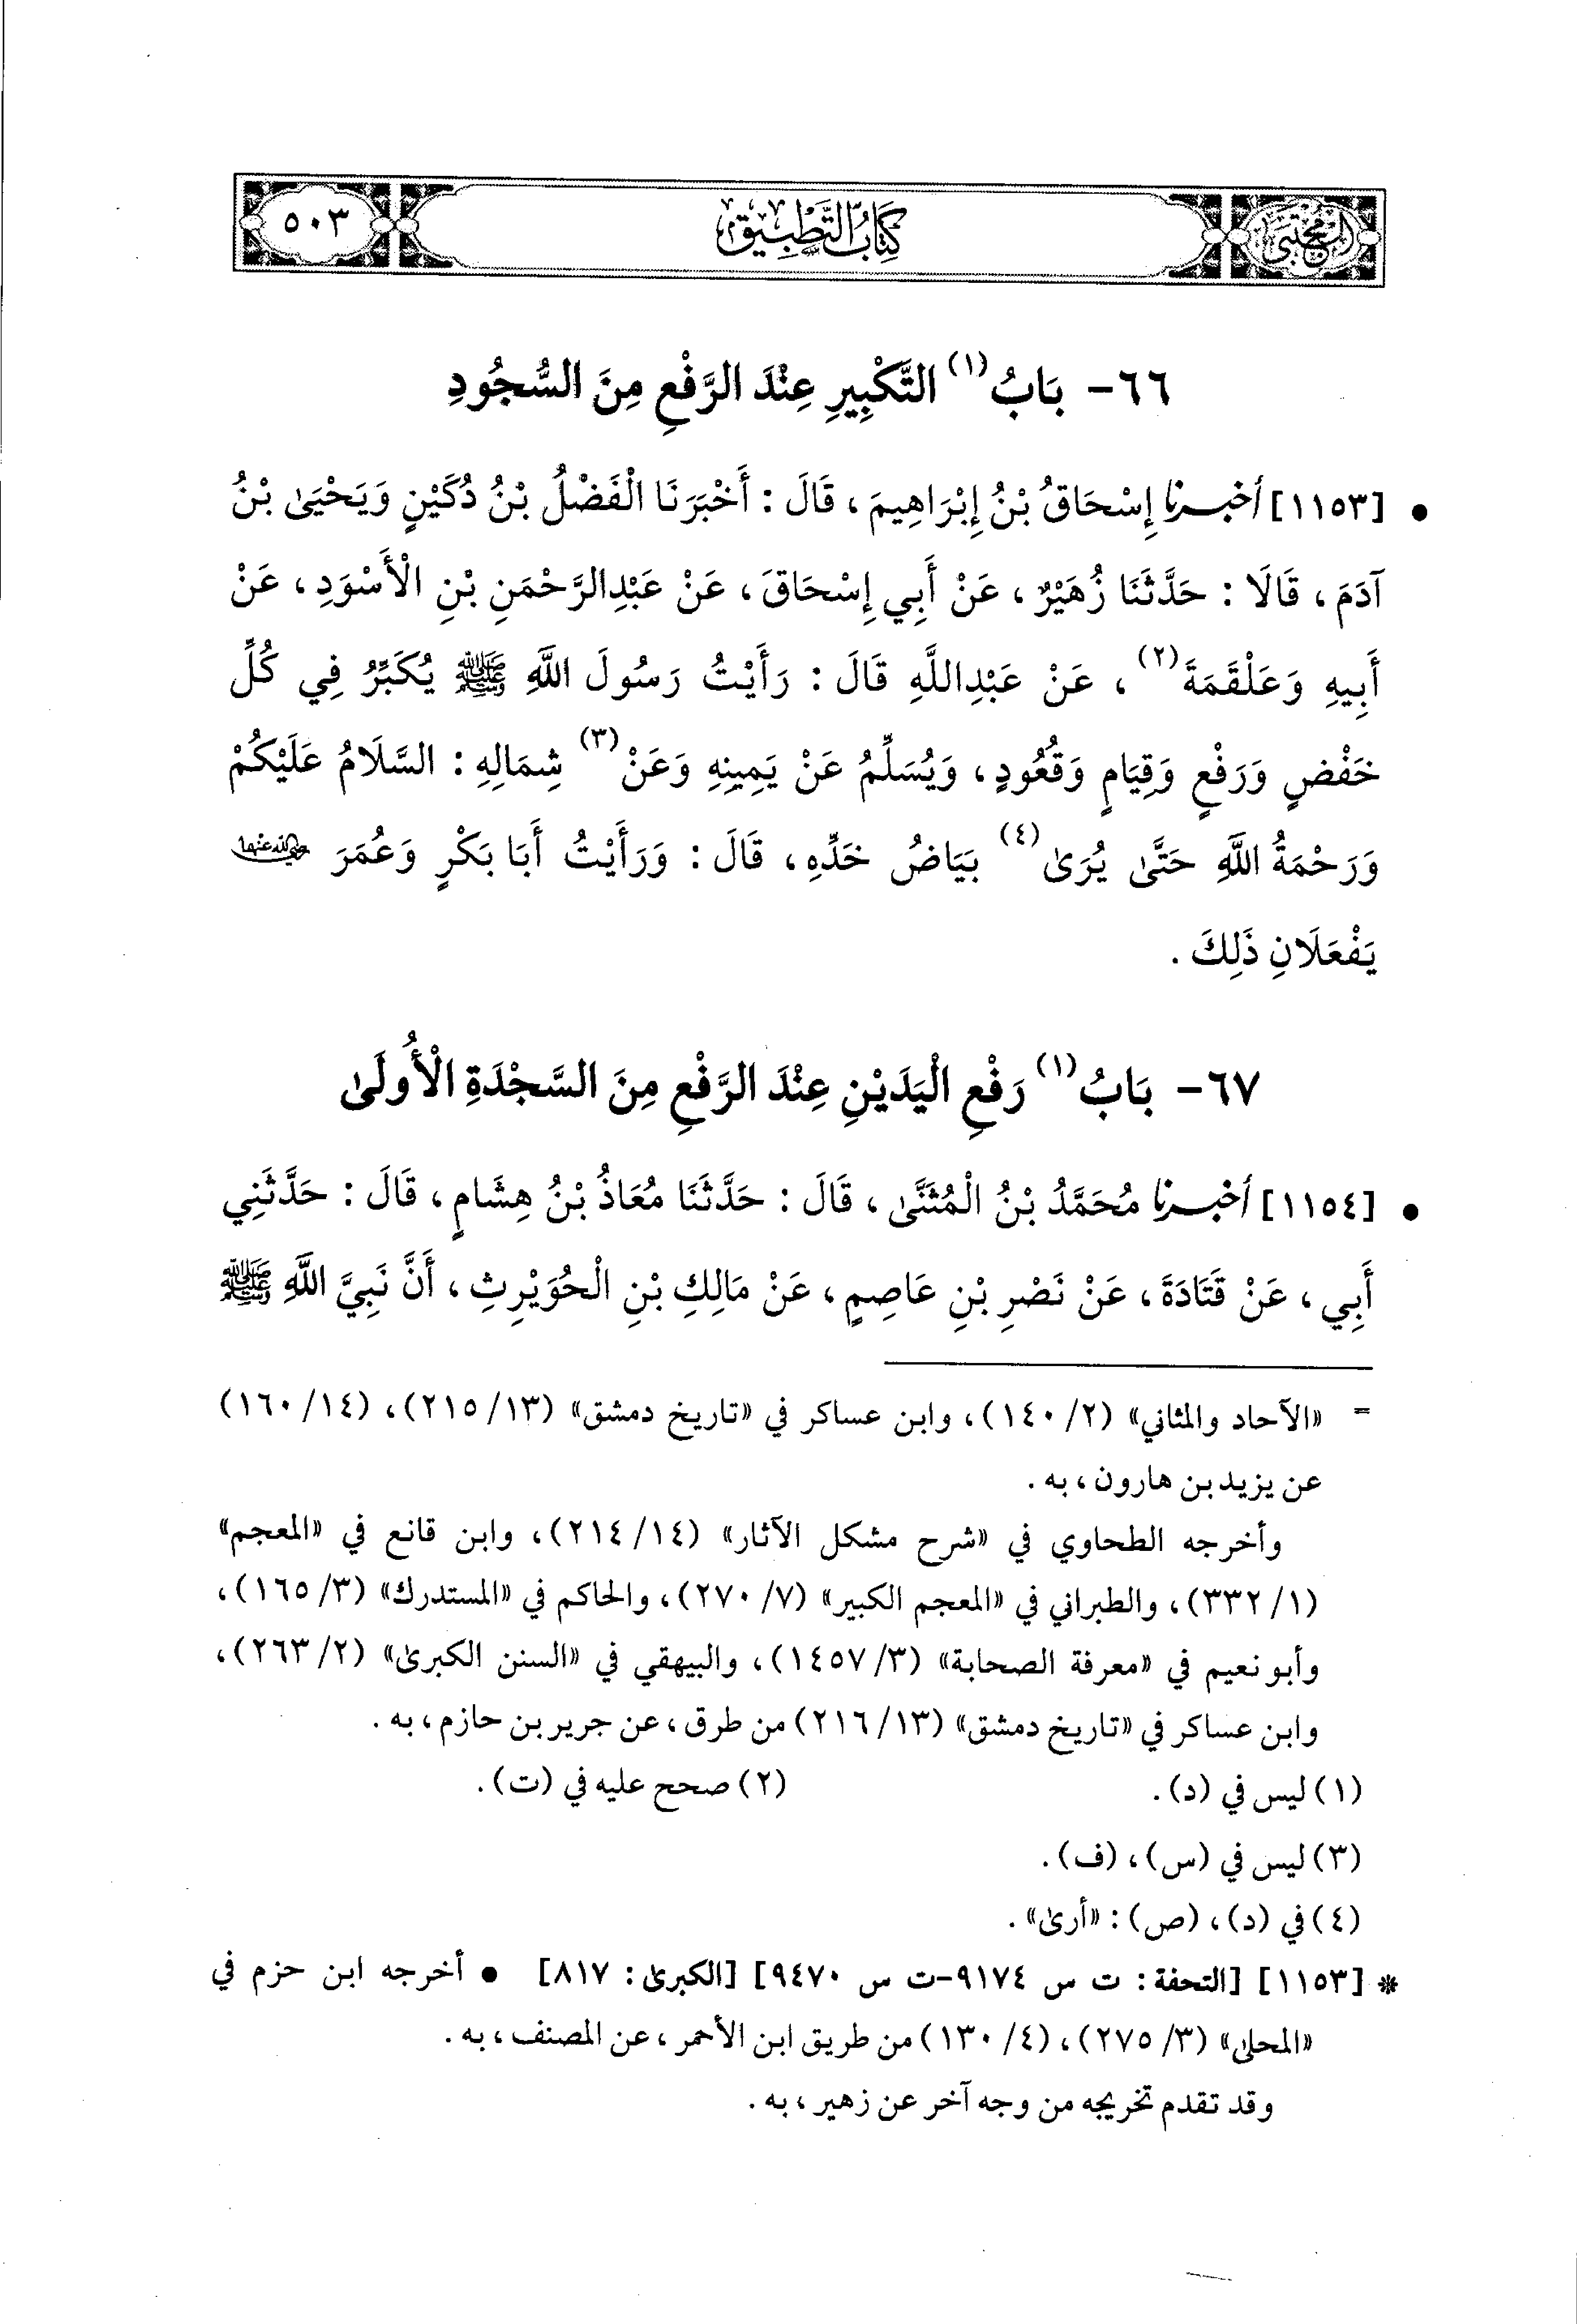 المجتبى
كِتَابُ التَّطْبِيقِ
٥٠٣
٦٦- بَابُ(١) التَّكْبِيرِ عِنْدَ الرَّفْعِ مِنَ السُّجُودِ
• [١١٥٣] أخبرنا إِسْحَاقُ بْنُ إِبْرَاهِيمَ، قَالَ: أَخْبَرَنَا الْفَضْلُ بْنُ دُكَيْنٍ وَيَحْيَىٰ بْنُ
آدَمَ، قَالَا: حَدَّثَنَا زُهَيْرٌ، عَنْ أَبِي إِسْحَاقَ، عَنْ عَبْدِالرَّحْمَنِ بْنِ الْأَسْوَدِ، عَنْ
أَبِيهِ وَعَلْقَمَةَ(٢)، عَنْ عَبْدِاللَّهِ قَالَ: رَأَيْتُ رَسُولَ اللَّهِ ﷺ يُكَبِّرُ فِي كُلِّ
خَفْضٍ وَرَفْعٍ وَقِيَامٍ وَقُعُودٍ، وَيُسَلِّمُ عَنْ يَمِينِهِ وَعَنْ(٣) شِمَالِهِ: السَّلَامُ عَلَيْكُمْ
وَرَحْمَةُ اللَّهِ حَتَّىٰ يُرَىٰ(٤) بَيَاضُ خَدِّهِ، قَالَ: وَرَأَيْتُ أَبَا بَكْرٍ وَعُمَرَ رضي الله عنهما
يَفْعَلَانِ ذَلِكَ.
٦٧- بَابُ(١) رَفْعِ الْيَدَيْنِ عِنْدَ الرَّفْعِ مِنَ السَّجْدَةِ الْأُولَىٰ
• [١١٥٤] أخبرنا مُحَمَّدُ بْنُ الْمُثَنَّىٰ، قَالَ: حَدَّثَنَا مُعَاذُ بْنُ هِشَامٍ، قَالَ: حَدَّثَنِي
أَبِي، عَنْ قَتَادَةَ، عَنْ نَصْرِ بْنِ عَاصِمٍ، عَنْ مَالِكِ بْنِ الْحُوَيْرِثِ، أَنَّ نَبِيَّ اللَّهِ ﷺ
= «الآحاد والمثاني» (٢/ ١٤٠)، وابن عساكر في «تاريخ دمشق» (١٣/ ٢١٥)، (١٤/ ١٦٠)
عن يزيد بن هارون، به.
وأخرجه الطحاوي في «شرح مشكل الآثار» (١٤/ ٢١٤)، وابن قانع في «المعجم»
(١/ ٣٣٢)، والطبراني في «المعجم الكبير» (٧/ ٢٧٠)، والحاكم في «المستدرك» (٣/ ١٦٥)،
وأبو نعيم في «معرفة الصحابة» (٣/ ١٤٥٧)، والبيهقي في «السنن الكبرىٰ» (٢/ ٢٦٣)،
وابن عساكر في «تاريخ دمشق» (١٣/ ٢١٦) من طرق، عن جرير بن حازم، به.
(١) ليس في (د). (٢) صحح عليه في (ت).
(٣) ليس في (س)، (ف).
(٤) في (د)، (ص): «أرىٰ».
* [١١٥٣] [التحفة: ت س ٩١٧٤-ت س ٩٤٧٠] [الكبرىٰ: ٨١٧] • أخرجه ابن حزم في
«المحلىٰ» (٣/ ٢٧٥)، (٤/ ١٣٠) من طريق ابن الأحمر، عن المصنف، به.
وقد تقدم تخريجه من وجه آخر عن زهير، به.